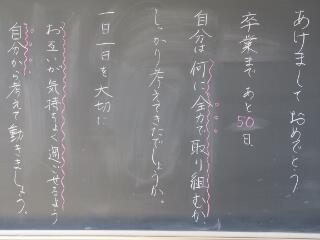 あけまして おめでとう
卒業まで あと50日
自分は 何に 全力で取り組むか
しっかり考えてきたでしょうか。
一日一日を 大切に
お互いが 気持ちよく過ごせるよう
自分から考えて 動きましょう。